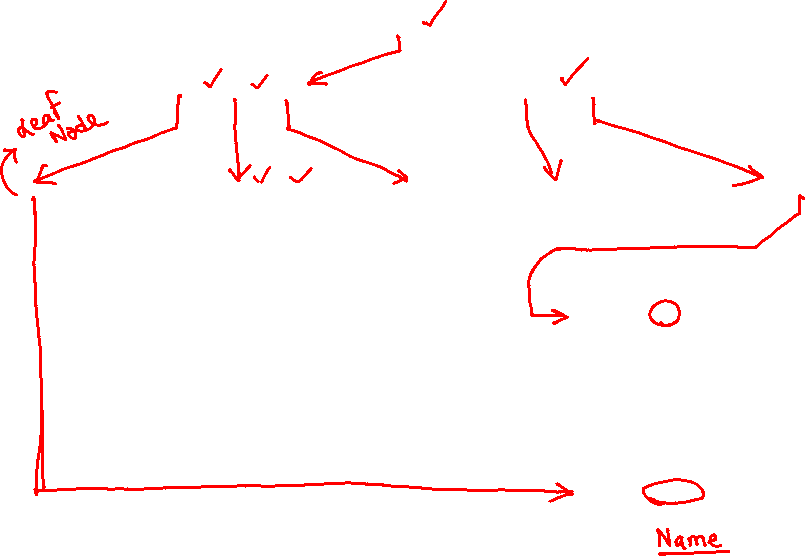 Leaf
Node
Name